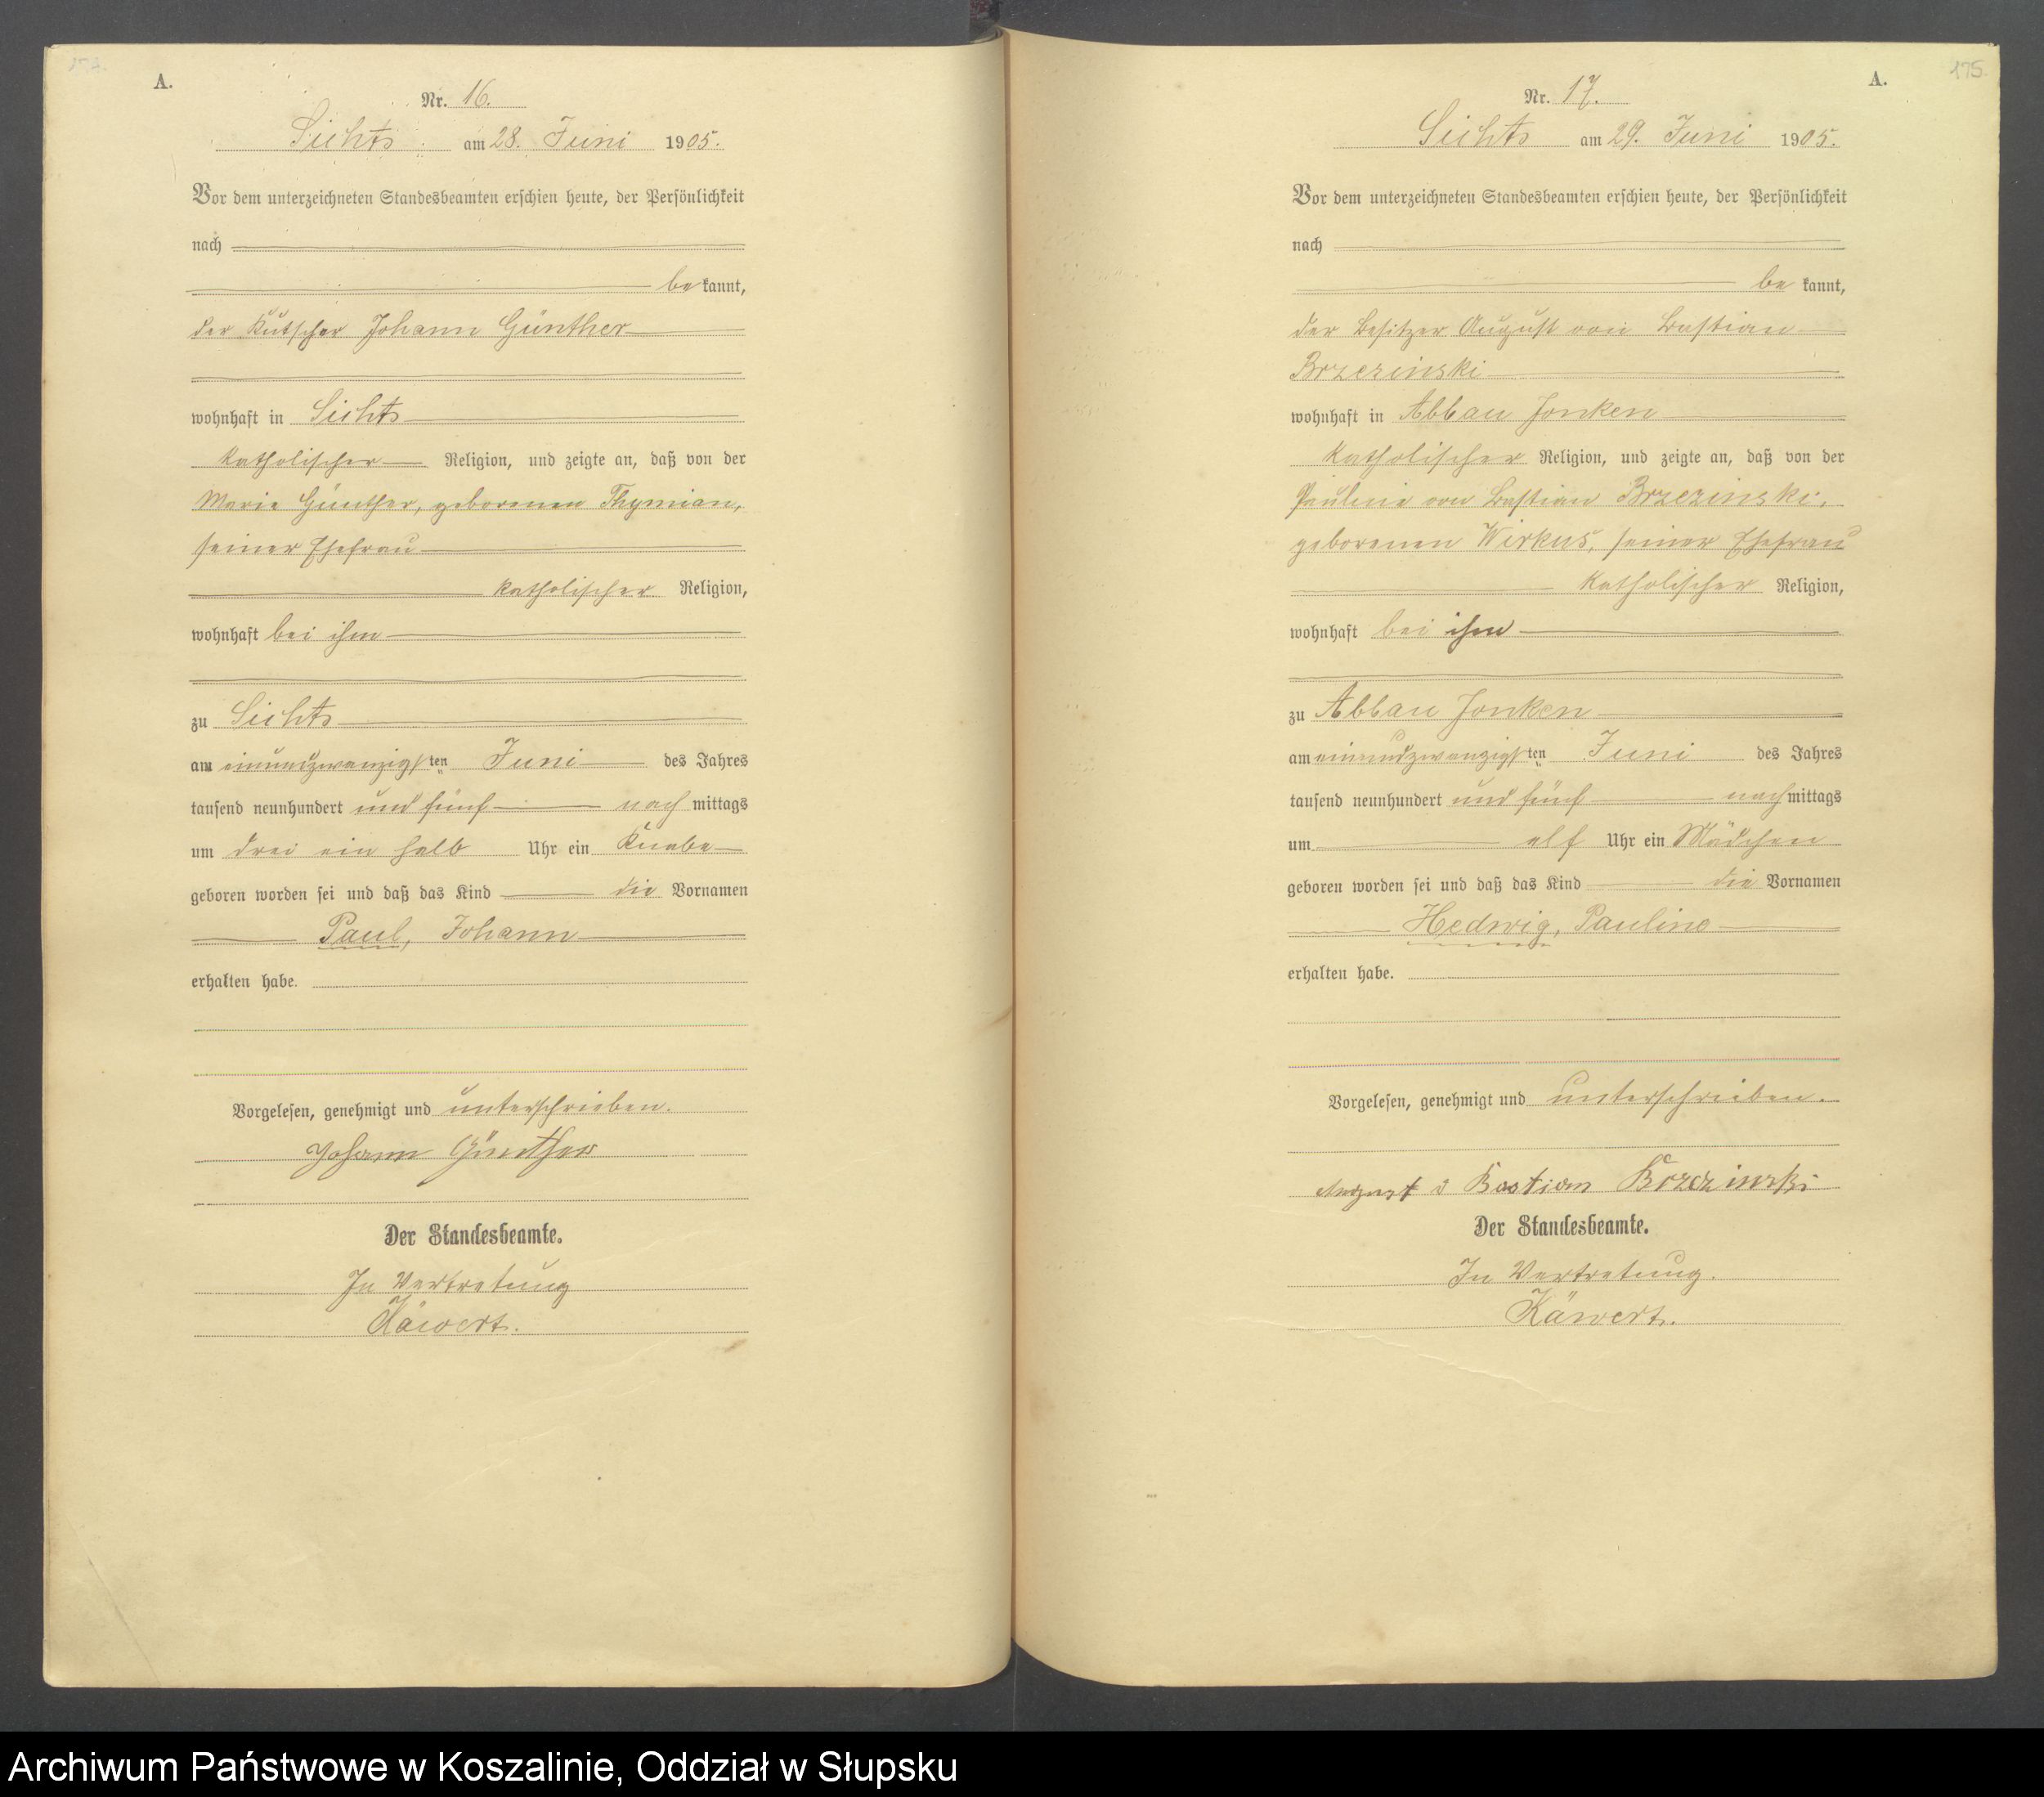 A.
Nr. 16.
Lichts am 28. Juni 1905.
Vor dem unterzeichneten Standesbeamten erschien heute, der Persönlichkeit
nach
be kannt,
der Kutscher Johann Günther
wohnhaft in Lichts
katholischer Religion, und zeigte an, daß von der
Marie Günther, geborenen Thymian,
seiner Ehefrau
katholischer Religion,
wohnhaft bei ihm
zu Lichts
am einundzwanzigsten Juni des Jahres
tausend neunhundert und fünf nach mittags
um drei ein halb Uhr ein Knabe
geboren worden sei und daß das Kind die Vornamen
Paul, Johann
erhalten habe.
Vorgelesen, genehmigt und unterschrieben.
Johann Günther
Der Standesbeamte.
In Vertretung
Käwert.
175.
A.
Nr. 17.
Lichts am 29. Juni 1905.
Vor dem unterzeichneten Standesbeamten erschien heute, der Persönlichkeit
nach
be kannt,
der Besitzer August von Bastian
Brzezinski
wohnhaft in Abbau Jonken
katholischer Religion, und zeigte an, daß von der
Pauline von Bastian Brzezinski,
geborenen Wirkus, seiner Ehefrau
katholischer Religion,
wohnhaft bei ihm
zu Abbau Jonken
am einundzwanzigsten Juni des Jahres
tausend neunhundert und fünf nach mittags
um elf Uhr ein Mädchen
geboren worden sei und daß das Kind die Vornamen
Hedwig, Pauline
erhalten habe.
Vorgelesen, genehmigt und unterschrieben.
August v Bastian Brzezinski
Der Standesbeamte.
In Vertretung.
Käwert.
Archiwum Państwowe w Koszalinie, Oddział w Słupsku